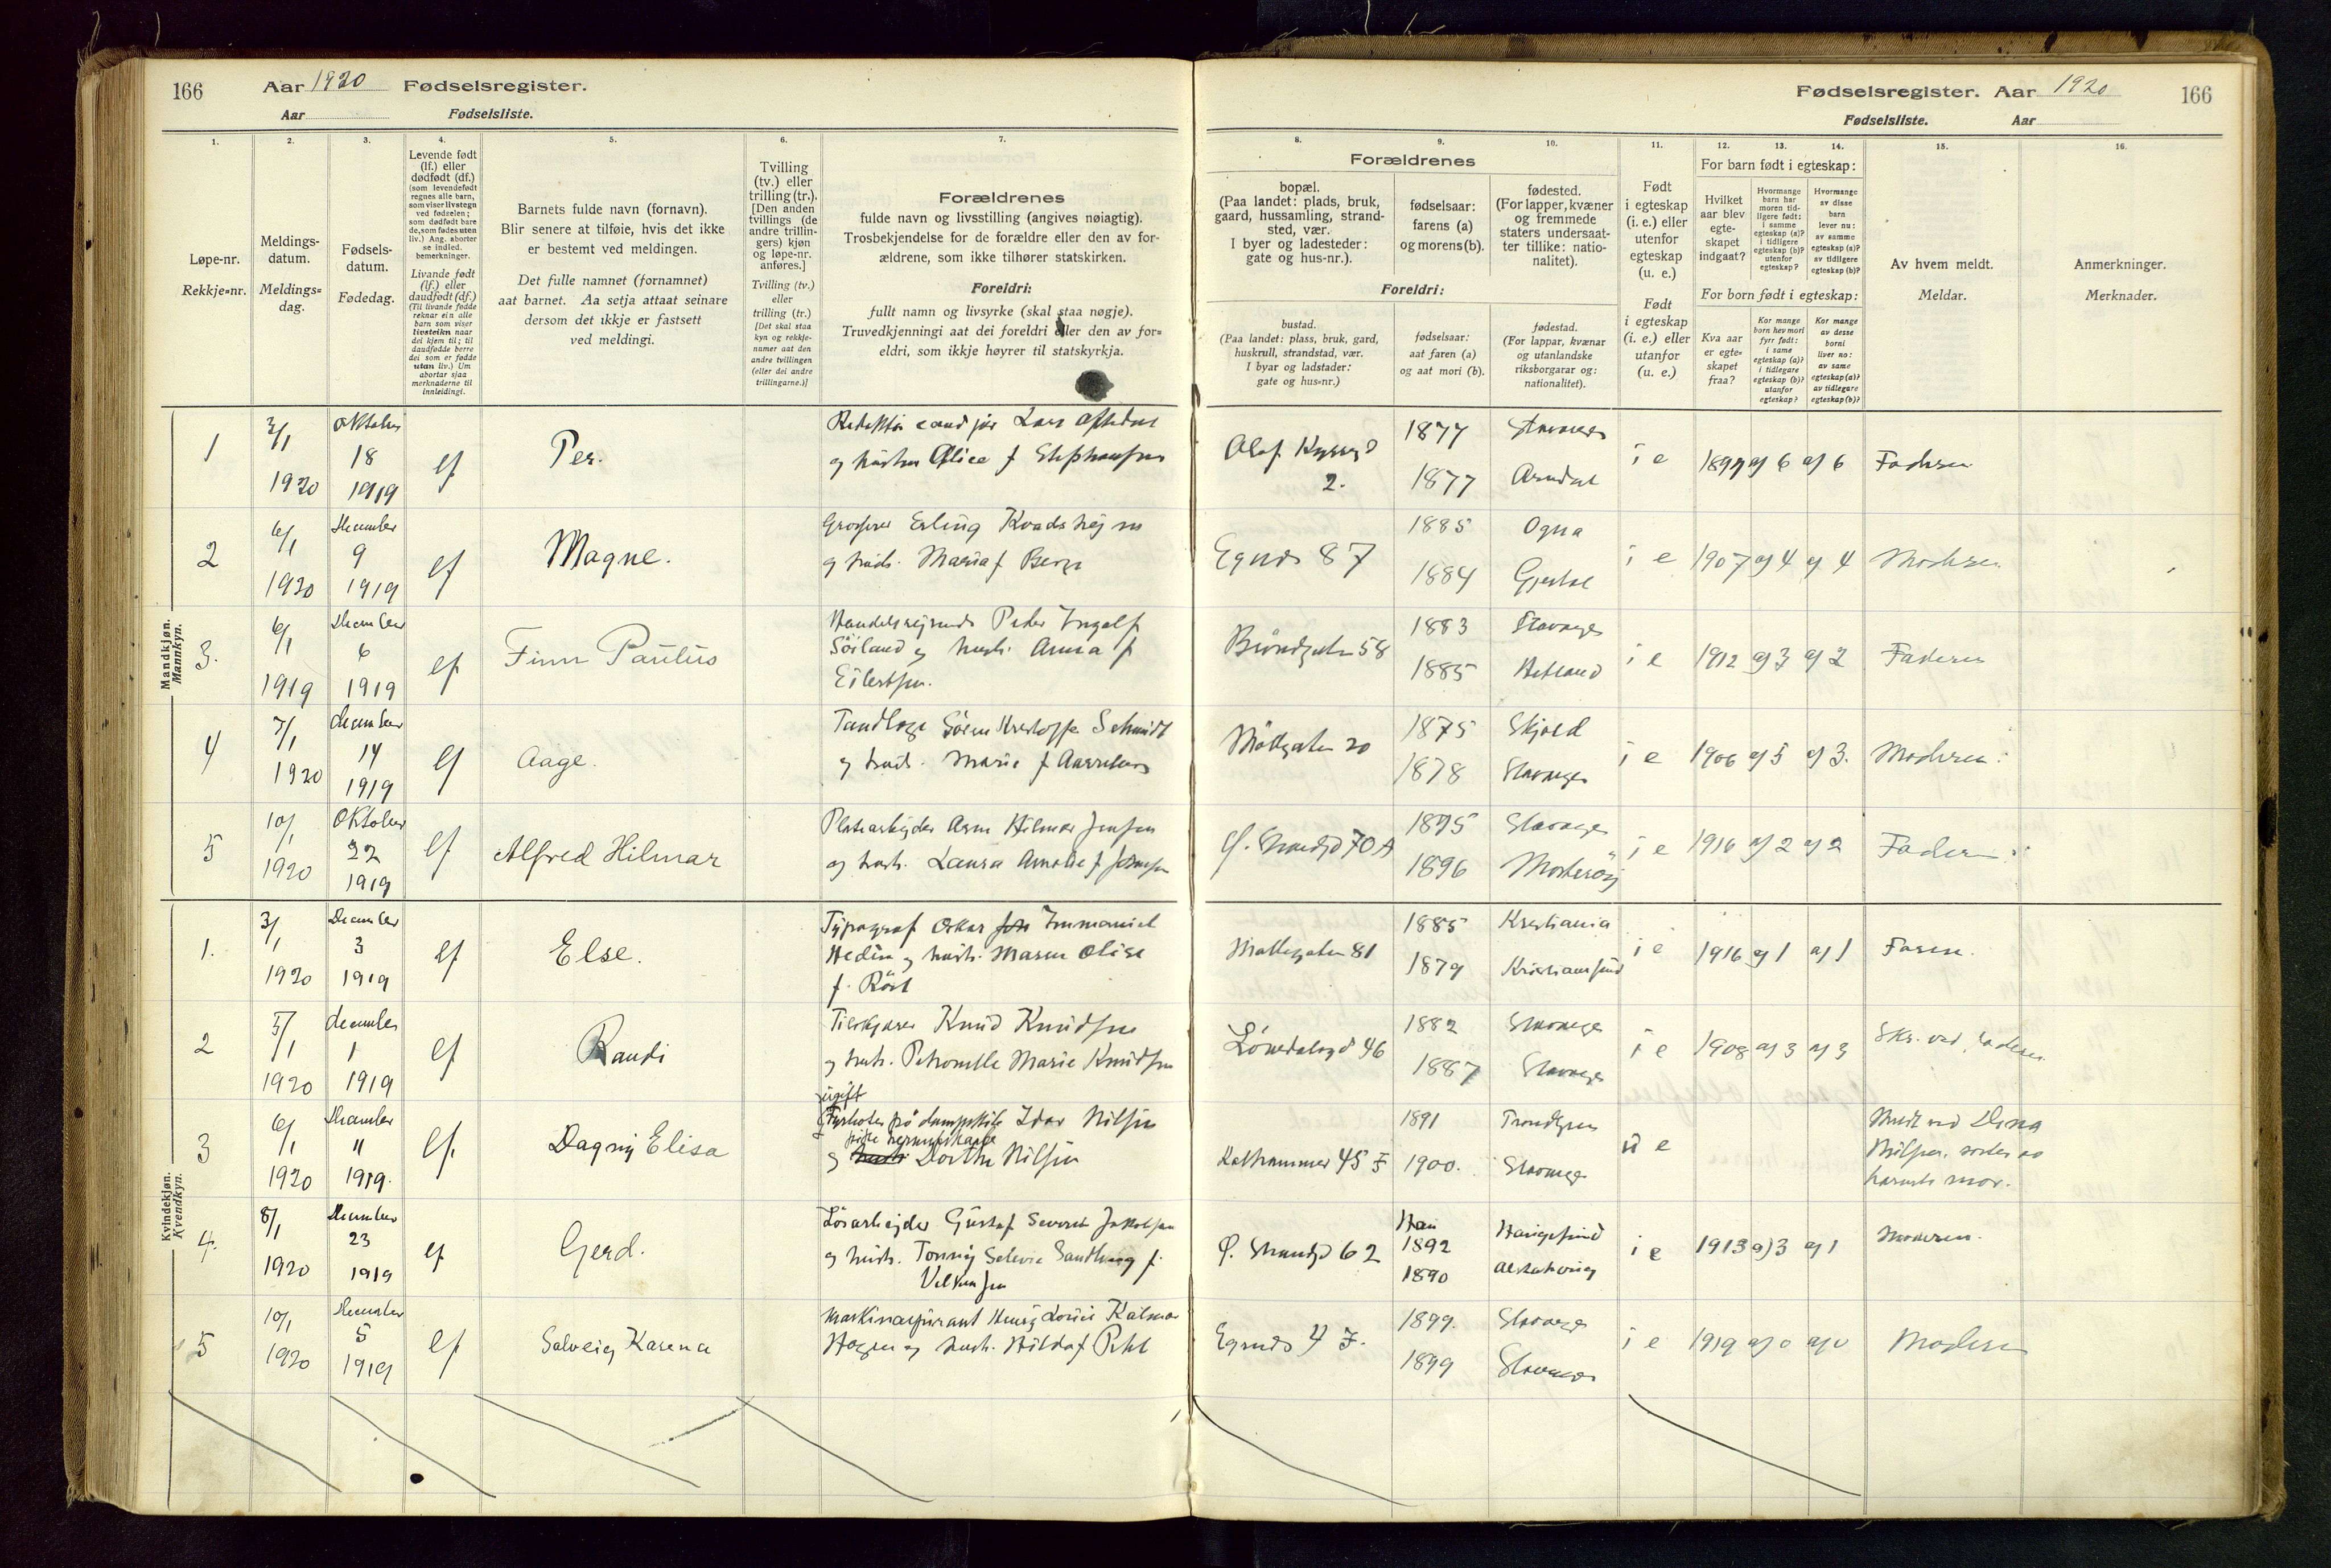 166 Aar 1920 Fødselsregister.
Aar Fødselsliste.
Fødselsregister. Aar 1920 166
Fødselsliste. Aar
1. 2. 3. 4. 5. 6. 7.
8. 9. 10. 11. 12. 13. 14. 15. 16.
Løpe-nr.
Rekkje=nr.
Meldings-
datum.
Meldings=
dag.
Fødsels-
datum.
Fødedag.
Levende født
(lf.) eller
dødfødt (df.)
(som levendefødt
regnes alle barn,
som viser livstegn
ved fødselen;
som dødfødt bare
de, som fødes uten
liv.) Ang. aborter
se indled.
bemerkninger.
Livande født
(lf.) eller
daudfødt (df.)
(Til livande fødde
reknar ein alle
barn som viser
livsteikn naar
dei kjem til; til
daudfødde berre
dei som er fødde
utan liv.) Um
abortar sjaa
merknaderne til
innleidingi.
Barnets fulde navn (fornavn).
Blir senere at tilføie, hvis det ikke
er bestemt ved meldingen.
Det fulle namnet (fornamnet)
aat barnet. Aa setja attaat seinare
dersom det ikkje er fastsett
ved meldingi.
Tvilling
(tv.) eller
trilling (tr.).
[Den anden
tvillings (de
andre trillin-
gers) kjøn
og løpe-nr.
anføres.]
Tvilling (tv.)
eller
trilling (tr.)
[Det skal staa
kyn og rekkje-
numer aat den
andre tvillingen
(eller dei andre
trillingarne.)]
Forældrenes
fulde navn og livsstilling (angives nøiagtig).
Trosbekjendelse for de forældre eller den av for-
ældrene, som ikke tilhører statskirken.
Foreldri:
fullt namn og livsyrke (skal staa nøgje).
Truvedkjenningi aat dei foreldri eller den av for=
eldri, som ikkje høyrer til statskyrkja.
Forældrenes
bopæl.
(Paa landet: plads, bruk,
gaard, hussamling, strand-
sted, vær.
I byer og ladesteder:
gate og hus-nr.).
fødselsaar:
farens (a)
og morens (b).
fødested.
(For lapper, kvæner
og fremmede
staters undersaat-
ter tillike: natio-
nalitet).
Foreldri:
bustad.
(Paa landet: plass, bruk, gard,
huskrull, strandstad, vær.
I byar og ladstader:
gate og hus=nr.)
fødselsaar:
aat faren (a)
og aat mori (b).
fødestad.
(For lappar, kvænar
og utanlandske
riksborgarar og:
nationalitet).
Født
i egteskap
(i. e.) eller
utenfor
egteskap
(u. e.)
Født
i egteskap
(i. e.) eller
utanfor
(u. e.)
For barn født i egteskap:
Hvilket
aar blev
egte-
skapet
indgaat?
Hvormange
barn har
moren tid-
ligere født:
i samme
egteskap (a)?
i tidligere
egteskap (b)?
utenfor
egteskap?
Hvormange
av disse
barn
lever nu:
av samme
egteskap (a)?
av tidligere
egteskap (b)?
For born født i egteskap:
Kva aar
er egte-
skapet
fraa?
Kor mange
born hev mori
fyrr født:
i same
egteskap (a)?
i tidlegare
egteskap (b)?
utanfor
egteskap?
Kor mange
av desse
borni
liver no:
av same
egteskap (a)?
av tidlegare
egteskap (b)?
Av hvem meldt.
Meldar.
Anmerkninger.
Merknader.
Mandkjøn.
Mannkyn.
1 3/1 1920 Oktober 18 1919 lf Per.
og hustru Alice f Stephansen
2. 1877 Stavanger 1877 Arendal i e 6 a) 6 Faderen
2 6/1 1920 December 9 1919 lf Magne.
Grosserer Erling
og hustr. Maria f Berge
Egnes 87 1885 Ogna 1884 Gjestal i e 1907 a) 4 a) 4 Moderen
3. 6/1 1919 December 6 1919 lf Finn Paulus
Handelsreisende Peder Ingolf
Söiland og hustr. Anna f
Eilertsen.
58 1883 Stavanger 1885 Hetland i e 1912 a) 3 a) 2 Faderen
4 7/1 1920 December 14 1919 lf Aage.
Tandlæge Sören Kristoffer Schmidt
og hustr. Marie f
Möllegaten 20 1875 Skjold 1878 Stavanger i e 1906 a) 5 a) 3. Moderen
5 10/1 1920 Oktober 22 1919 lf Alfred Hilmar
Hilmar Jensen
og hustr. Laura Amalie f
70 A 1895 Stavanger 1896 Mosterøy i e 1916 a) 2 a) 2 Faderen
Kvindekjøn.
Kvendkyn.
1. 3/1 1920 December 3 1919 lf Else.
Typograf Oskar Immanuel
Hedin og hustr. Maren Olise
f. Röst
Möllegaten 81 1885 Kristiania 1879 Kristiansund i e 1916 a) 1 a) 1 Faren.
2 5/1 1920 December 1 1919 lf Randi
Tilskjærer Knud Knudsen
og hustr. Petronelle Marie Knudsen
46 1882 Stavanger 1887 Stavanger i e 1908 a) 3 a) 3 Skr. ved faderen
3 6/1 1920 December 11 1919. lf. Dagny Elisa
ugift
Fyrböter på dampskib Idar Nilsen
pike hermetikarb.
og Dorthe Nilsen
Kalhammer 45 I 1891 Trondhjem 1900. Stavanger u e
Meldt ved Dina
Nilsen. söster av
barnets mor.
4. 8/1 1920 December 23 1919 lf Gerd.
Lösarbejder Gustaf Severin Jakobsen
og hustr. Tonny f.
62 1892 Haugesund 1890 i e 1913 a) 3 a) 1 Moderen.
5 10/1 1920 December 5 1919 lf Solveig Karena
Maskinaspirant Henry Louis Kalmar
og hustr. Hilda f
Egenes 4 I. 1899. Stavanger 1899 Stavanger i e 1919 a) 0 a) 0 Moderen